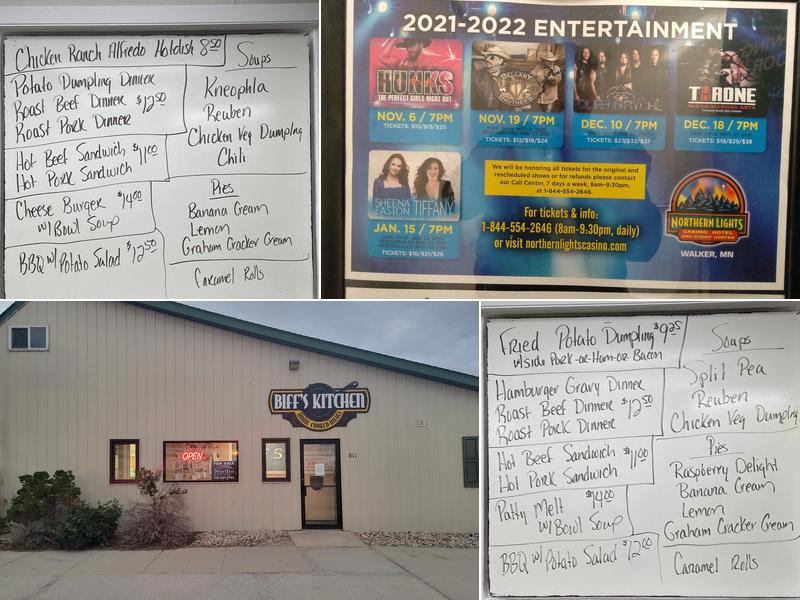 Chicken Ranch Alfredo Hotdish 8.50
Potato Dumpling Dinner
Roast Beef Dinner $12.50
Roast Pork Dinner
Hot Beef Sandwich $11.00
Hot Pork Sandwich
Cheese Burger $14.00
w/ Bowl Soup
BBQ w/ Potato Salad $12.50
Soups
Kneophla
Reuben
Chicken Veg Dumpling
Chili
Pies
Banana Cream
Lemon
Graham Cracker Cream
Caramel Rolls
2021-2022 ENTERTAINMENT
HUNKS
THE PERFECT GIRLS NIGHT OUT
NOV. 6 / 7PM
TICKETS: $10/$15/$20
BELLAMY
BROTHERS
NOV. 19 / 7PM
TICKETS: $12/$18/$24
DEC. 10 / 7PM
TICKETS: $27/$32/$37
THRONE
MIXED MARTIAL ARTS
DEC. 18 / 7PM
TICKETS: $19/$29/$39
SHEENA EASTON
TIFFANY
JAN. 15 / 7PM
TICKETS: $16/$21/$26
We will be honoring all tickets for the original and
rescheduled shows or for refunds please contact
our Call Center, 7 days a week, 8am-9:30pm,
at 1-844-554-2646.
For tickets & info:
1-844-554-2646 (8am-9:30pm, daily)
or visit northernlightscasino.com
NORTHERN LIGHTS
CASINO HOTEL
AND EVENT CENTER
WALKER, MN
BIFF'S KITCHEN
HOME COOKED MEALS
OPEN
FOR SALE
811
Fried Potato Dumpling $9.25
w/side Pork-or-Ham-or-Bacon
Hamburger Gravy Dinner
Roast Beef Dinner $12.50
Roast Pork Dinner
Hot Beef Sandwich $11.00
Hot Pork Sandwich
Patty Melt $14.00
w/ Bowl Soup
BBQ w/ Potato Salad $12.00
Soups
Split Pea
Reuben
Chicken Veg Dumpling
Pies
Raspberry Delight
Banana Cream
Lemon
Graham Cracker Cream
Caramel Rolls